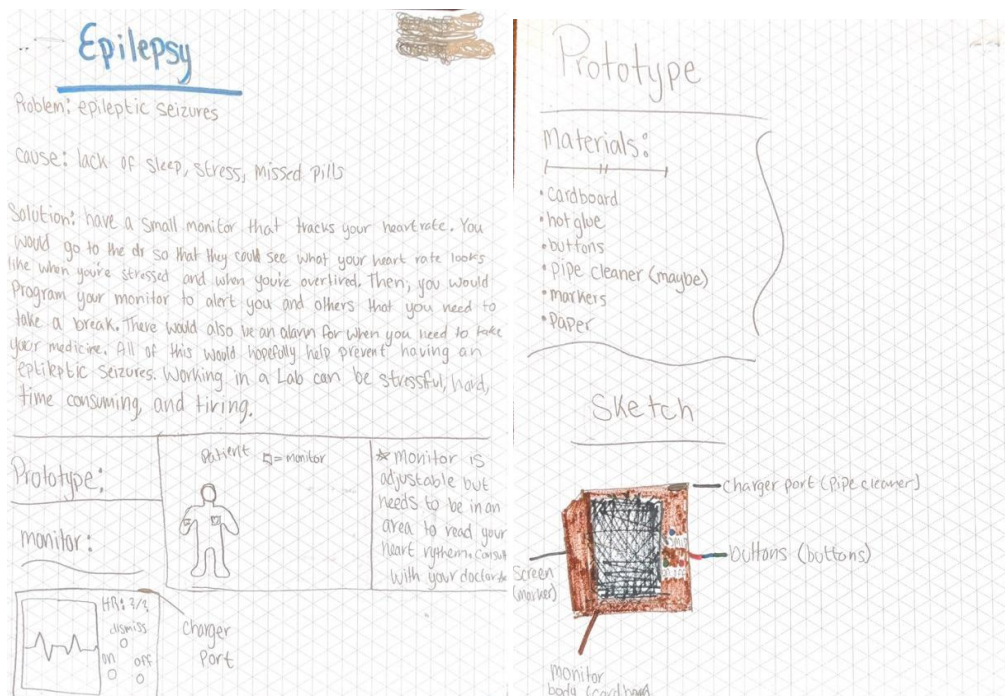 Epilepsy
Problem: epileptic seizures
cause: lack of sleep, stress, missed pills
Solution: have a small monitor that tracks your heartrate. You
would go to the dr so that they could see what your heart rate looks
like when you're stressed and when you're overtired. Then, you would
Program your monitor to alert you and others that you need to
take a break. There would also be an alarm for when you need to take
your medicine. All of this would hopefully help prevent having an
eptileptic seizures. Working in a Lab can be stressful, hard,
time consuming, and tiring.
Prototype:
monitor:
patient = monitor
* monitor is
adjustable but
needs to be in an
area to read your
heart rythem. consult
with your doctor
HR:
dismiss
on off
charger
Port
Prototype
materials:
• cardboard
• hot glue
• buttons
• pipe cleaner (maybe)
• markers
• Paper
Sketch
Charger port (Pipe cleaner)
buttons (buttons)
Screen
(marker)
monitor
body (cardboard